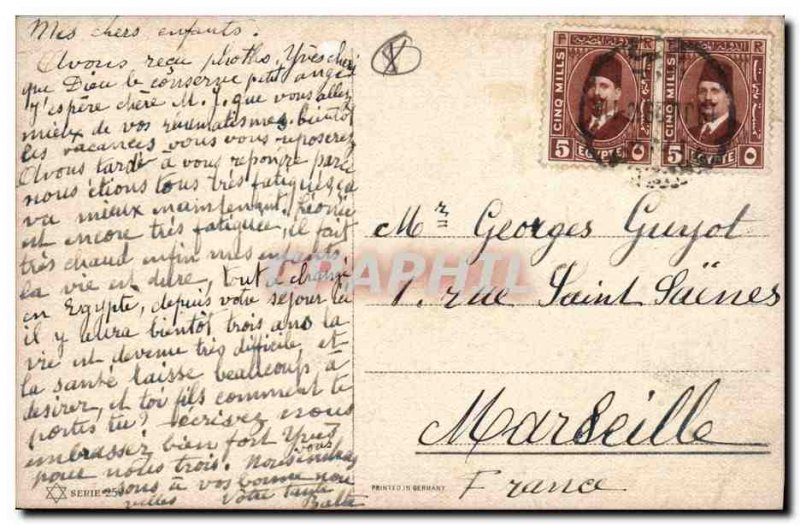 Mes chers enfants.
Avons reçu photho. Yves chéri
que Dieu le conserve petit ange
J'espère chère M. J. que vous allez
mieux de vos rhumatismes, bientôt
les vacances vous vous reposerez
Avons tardé à vous repondre parc
nous étions tous très fatigués, ça
va mieux maintenant.
est encore très fatiguée, il fait
très chaud enfin mes enfants
la vie est dure, tout a changé
en Egypte, depuis votre séjour ici
il y aura bientôt trois ans la
vie est devenue très difficile et
la santé laisse beaucoup à
désirer, et toi fils comment te
portes tu? écrivez nous
embrassez bien fort Yves
pour nous trois. Nous
vous
à vos bonne nou
velles Votre tante
CINQ MILLS
5 EGYPTE ٥
CINQ MILLS
5 EGYPTE ٥
Mr Georges Guyot
1. rue Saint Saënes
Marseille
France
CPAPHIL
SERIE 25
PRINTED IN GERMANY